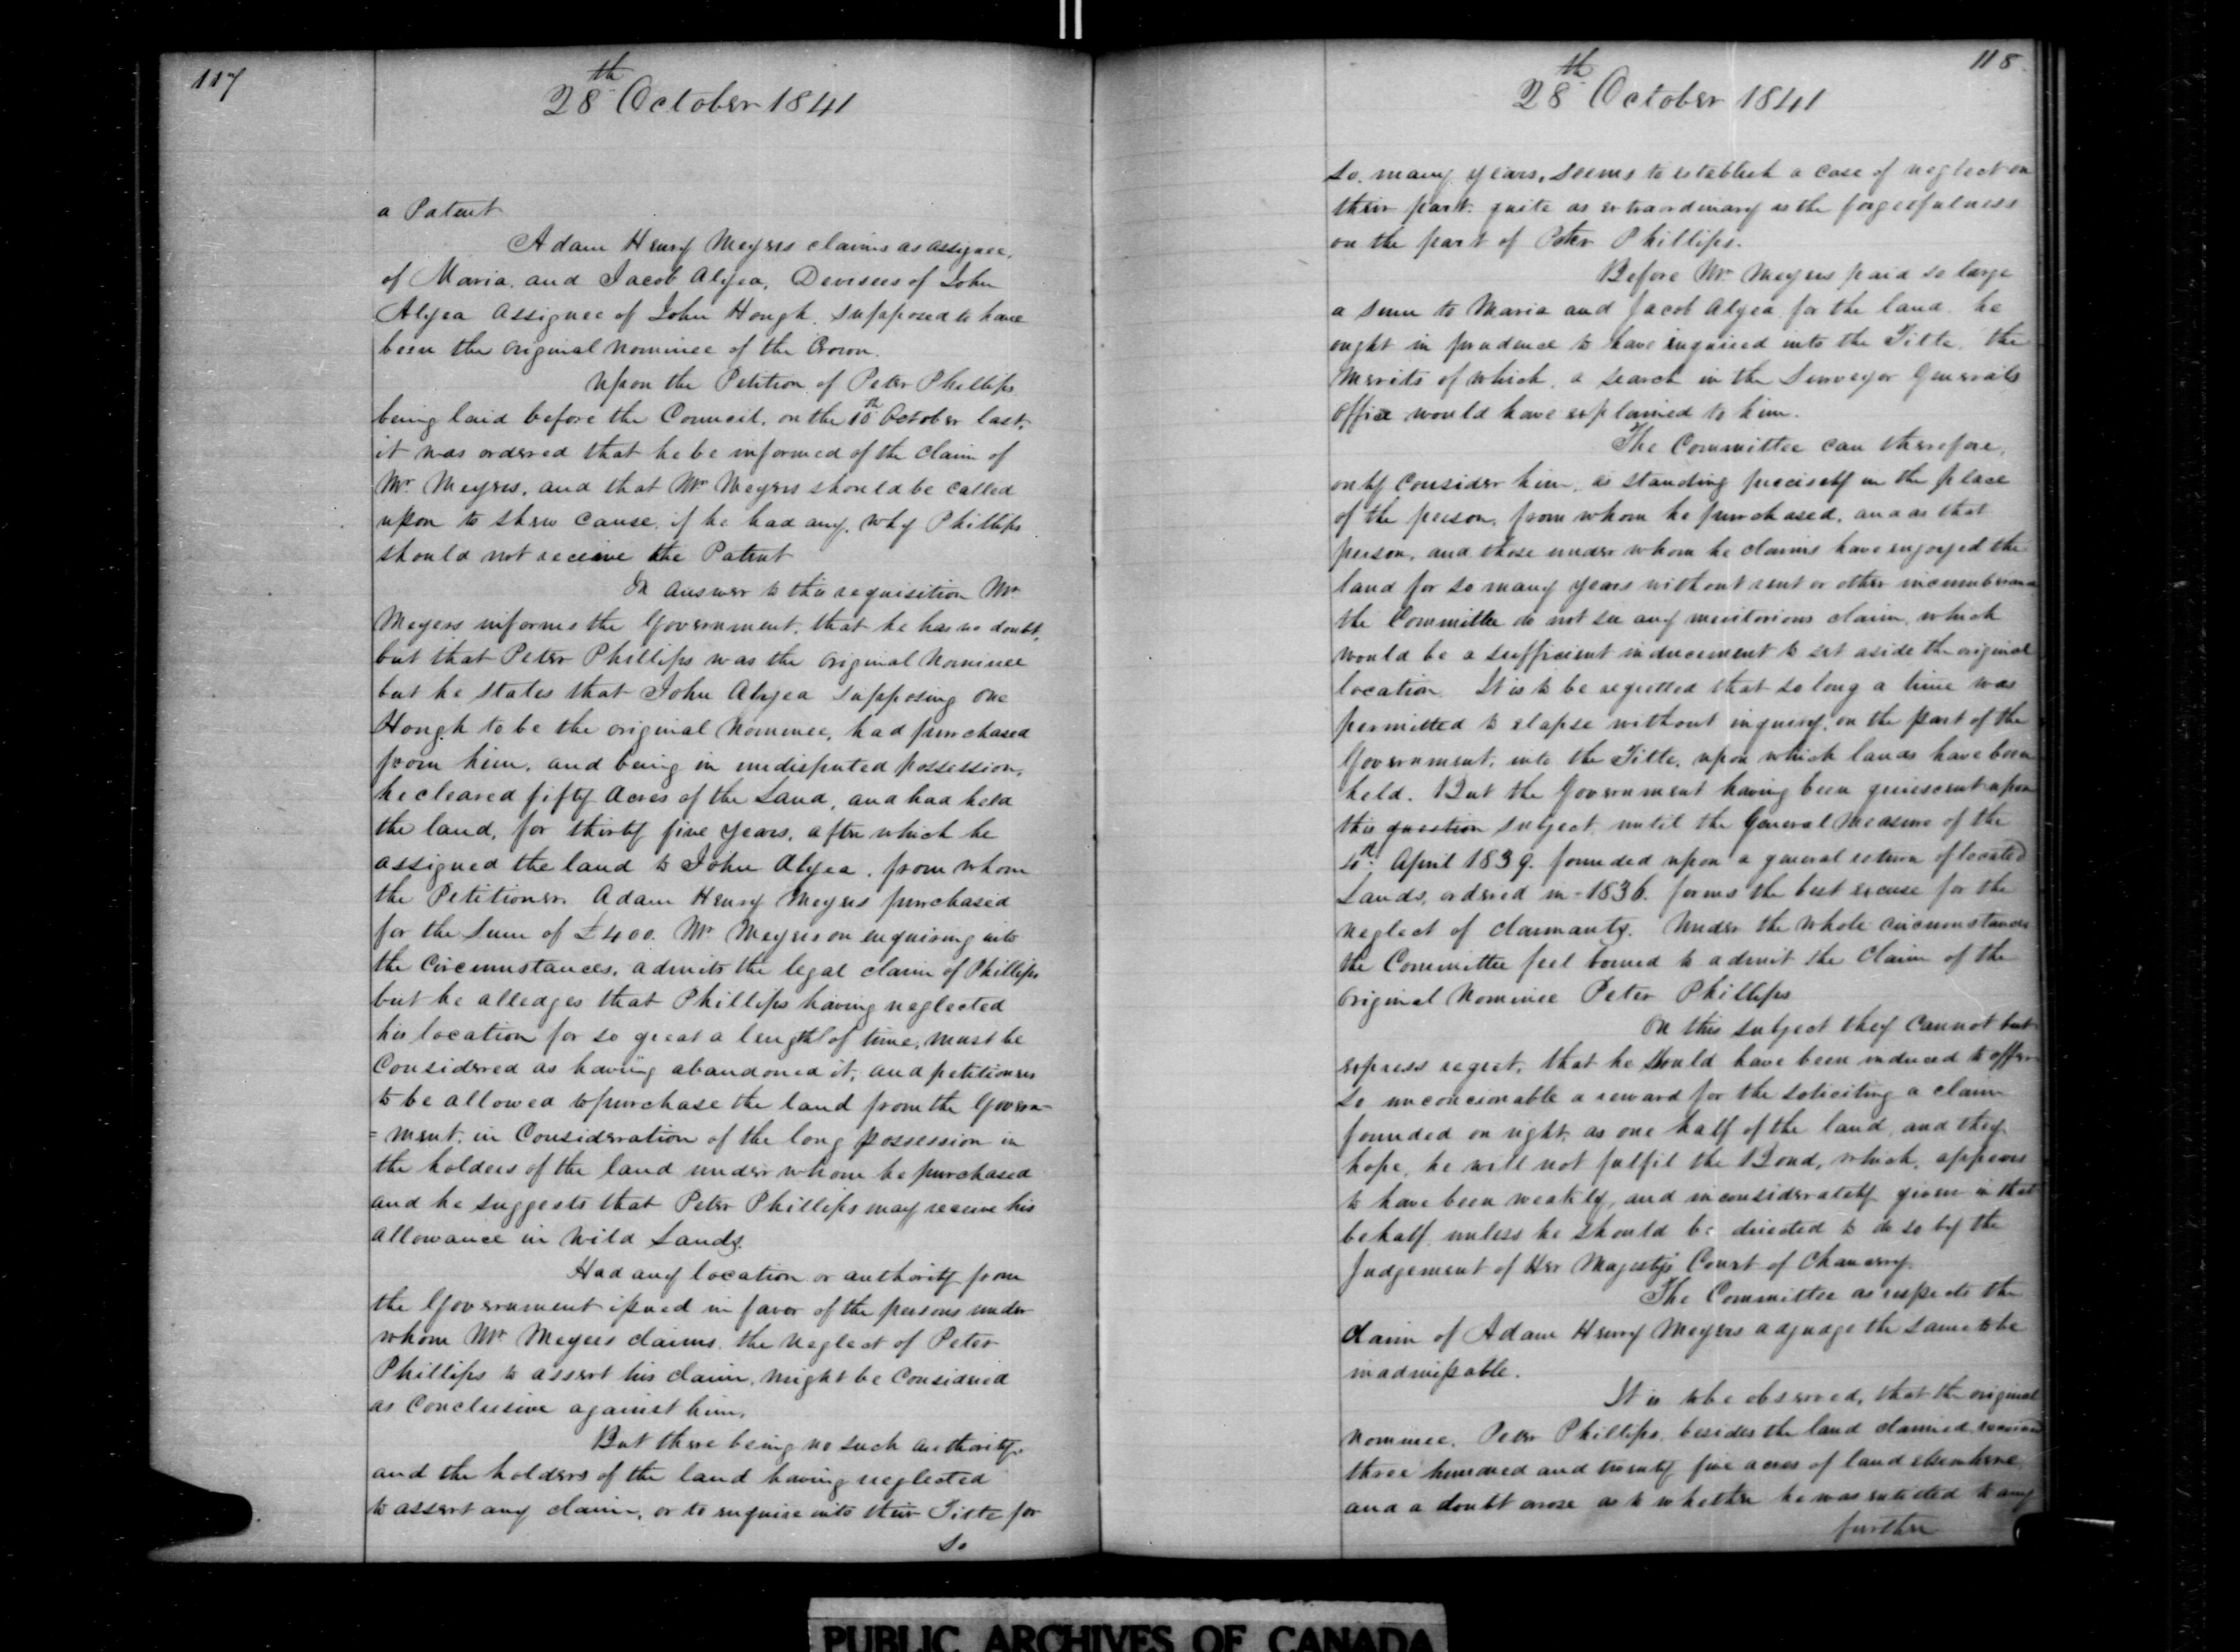 117
28th October 1841
a Patent
Adam Henry Meyers claims as assignee,
of Maria, and Jacob Alyea, Devisees of John
Alyea Assignee of John Hough, supposed to have
been the original Nominee of the Crown.
Upon the Petition of Peter Phillips
being laid before the Council, on the 10th October last,
it was ordered that he be informed of the claim of
Mr Meyers, and that Mr Meyers should be called
upon to shew cause, if he had any, why Phillips
should not receive the Patent
In answer to this requisition Mr
Meyers informs the Government, that he has no doubt,
but that Peter Phillips was the original Nominee
but he states that John Alyea supposing one
Hough to be the original Nominee, had purchased
from him, and being in undisputed possession,
he cleared fifty Acres of the Land, and had held
the land, for thirty five years, after which he
assigned the land to John Alyea, from whom
the Petitioner Adam Henry Meyers purchased
for the Sum of £400. Mr Meyers on enquiring into
the Circumstances, admits the legal claim of Phillips
but he alledges that Phillips having neglected
his location for so great a length of time, must be
Considered as having abandoned it, and petitioners
to be allowed to purchase the land from the Govern=
=ment, in Consideration of the long possession in
the holders of the land under whom he purchased
and he suggests that Peter Phillips may receive his
allowance in Wild Lands.
Had any location or authority from
the Government issued in favor of the persons under
whom Mr Meyers claims, the neglect of Peter
Phillips to assert his claim, might be Considered
as Conclusive against him,
But there being no such authority,
and the holders of the land having neglected
to assert any claim, or to enquire into their Title for
so
118
28th October 1841
so many years, seems to establish a case of neglect on
their part, quite as extraordinary as the forgetfulness
on the part of Peter Phillips.
Before Mr Meyers paid so large
a sum to Maria and Jacob Alyea for the land, he
ought in prudence to have inquired into the Title, the
Merits of which, a search in the Surveyor Generals
office would have explained to him.
The Committee can therefore,
only Consider him, as standing precisely in the place
of the person, from whom he purchased, and as that
person, and those under whom he claims have enjoyed the
land for so many years without rent or other incumberance
the Committee do not see any meritorious claim, which
would be a sufficient inducement to set aside the original
location. It is to be regretted that so long a time was
permitted to elapse without inquiry, on the part of the
Government, into the Title, upon which lands have been
held. But the Government having been quiescent upon
this question subject, until the General Measure of the
4th April 1839. founded upon a general return of located
Lands, ordered in 1836. forms the best excuse for the
neglect of claimants. Under the whole circumstances
the Committee feel bound to admit the Claim of the
original Nominee Peter Phillips
On this subject they cannot but
express regret, that he should have been induced to offer
so unconcionable a reward for the soliciting a claim
founded on right, as one half of the land, and they
hope, he will not fulfil the Bond, which, appears
to have been weakly, and inconsiderately given in that
behalf unless he should be directed to do so by the
Judgement of Her Majesty's Court of Chancery.
The Committee as respects the
claim of Adam Henry Meyers adjudge the same to be
inadmissable.
It is to be observed, that the original
Nominee, Peter Phillips, besides the land claimed received
three hundred and twenty five acres of land elsewhere
and a doubt arose as to whether he was entitled to any
further
PUBLIC ARCHIVES OF CANADA